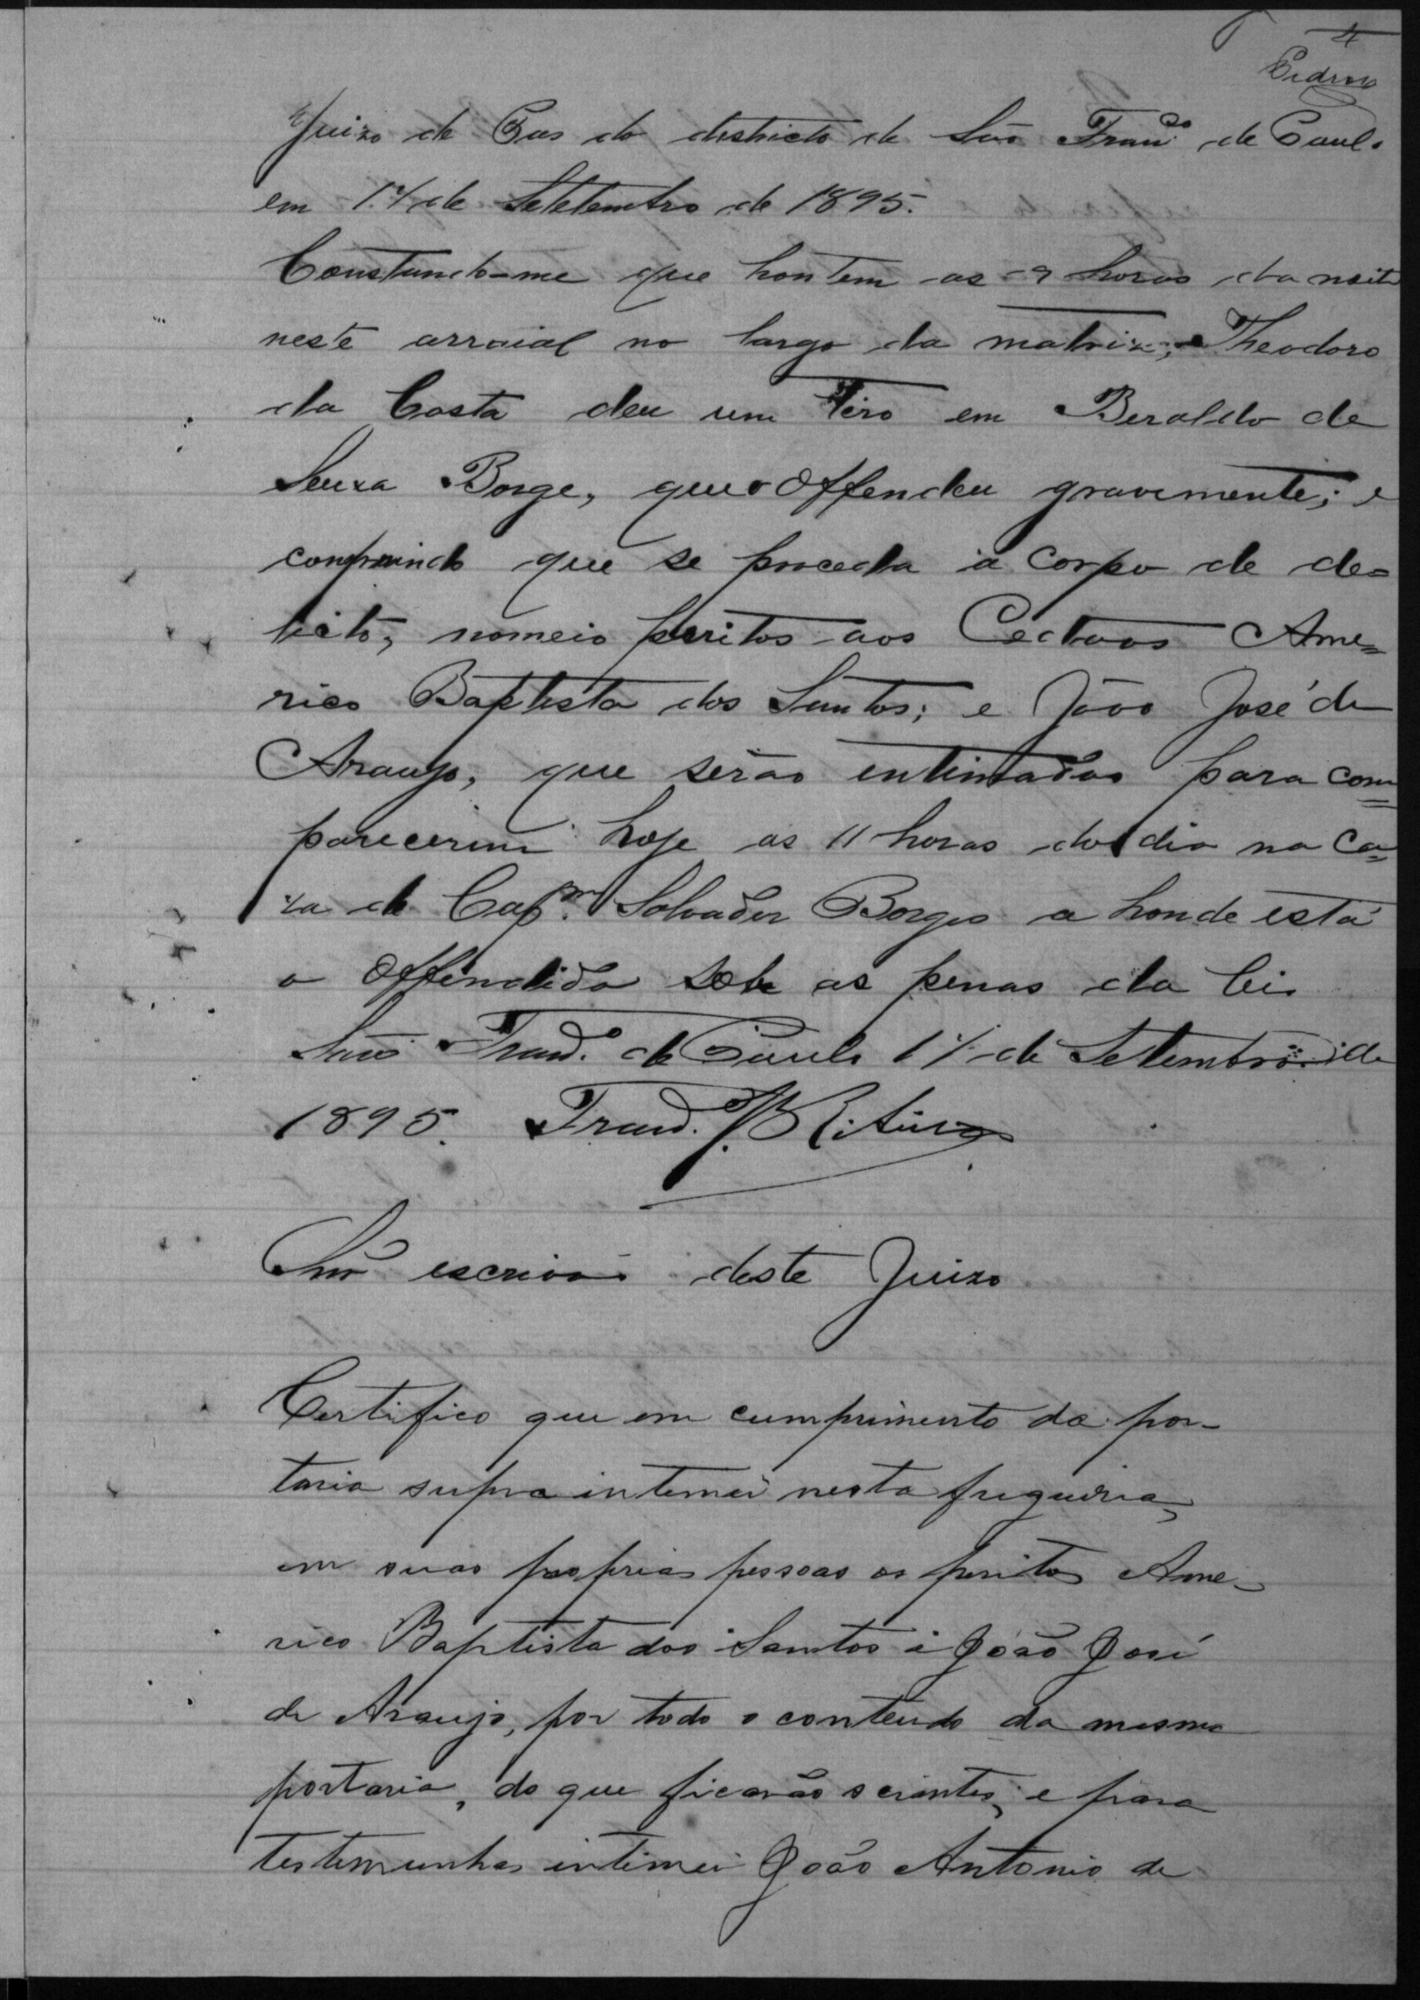 4
Pedroso
Juizo de Pas do districto de São Franco de Paula
em 1º de Setetembro de 1895.
Constando-me que hontem as 9 horas da noite
neste arraial no largo da matriz, Theodoro
da Costa deu um tiro em Beraldo de
Souza Borge, que o Offendeu gravemente; e
comprindo que se proceda a corpo de de=
licto, nomeio peritos aos Cidadãos Ame=
rico Baptista dos Santos; e João José de
Araujo, que serão intimados para com=
parecerem hoje as 11 horas do dia na ca=
za de Capm. Salvador Borges a honde está
o Offendido sob as penas da lei.
São Franco. de Paula 1º de Setembro de
1895. Franco.
Snr escrivão deste Juizo
Certifico que em cumprimento da por-
taria supra intemei nesta freguezia,
em suas proprias pessoas os peritos Ame-
rico Baptista dos Santos i João José
de Araujo, por todo o conteudo da mesma
portaria, do que ficarão scientes; e para
testemunhas intimei João Antonio de